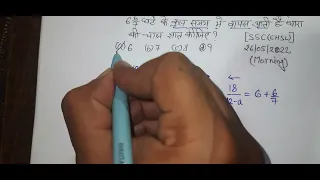 6 6/7 घंटे के कुल समय में वापस आती है धारा
की चाल ज्ञात कीजिए ? [SSC(CHSL)
(a) 6 (b) 7 (c) 8 (d) 9 26/05/2022
(Morning)
18/12-a = 6 + 6/7